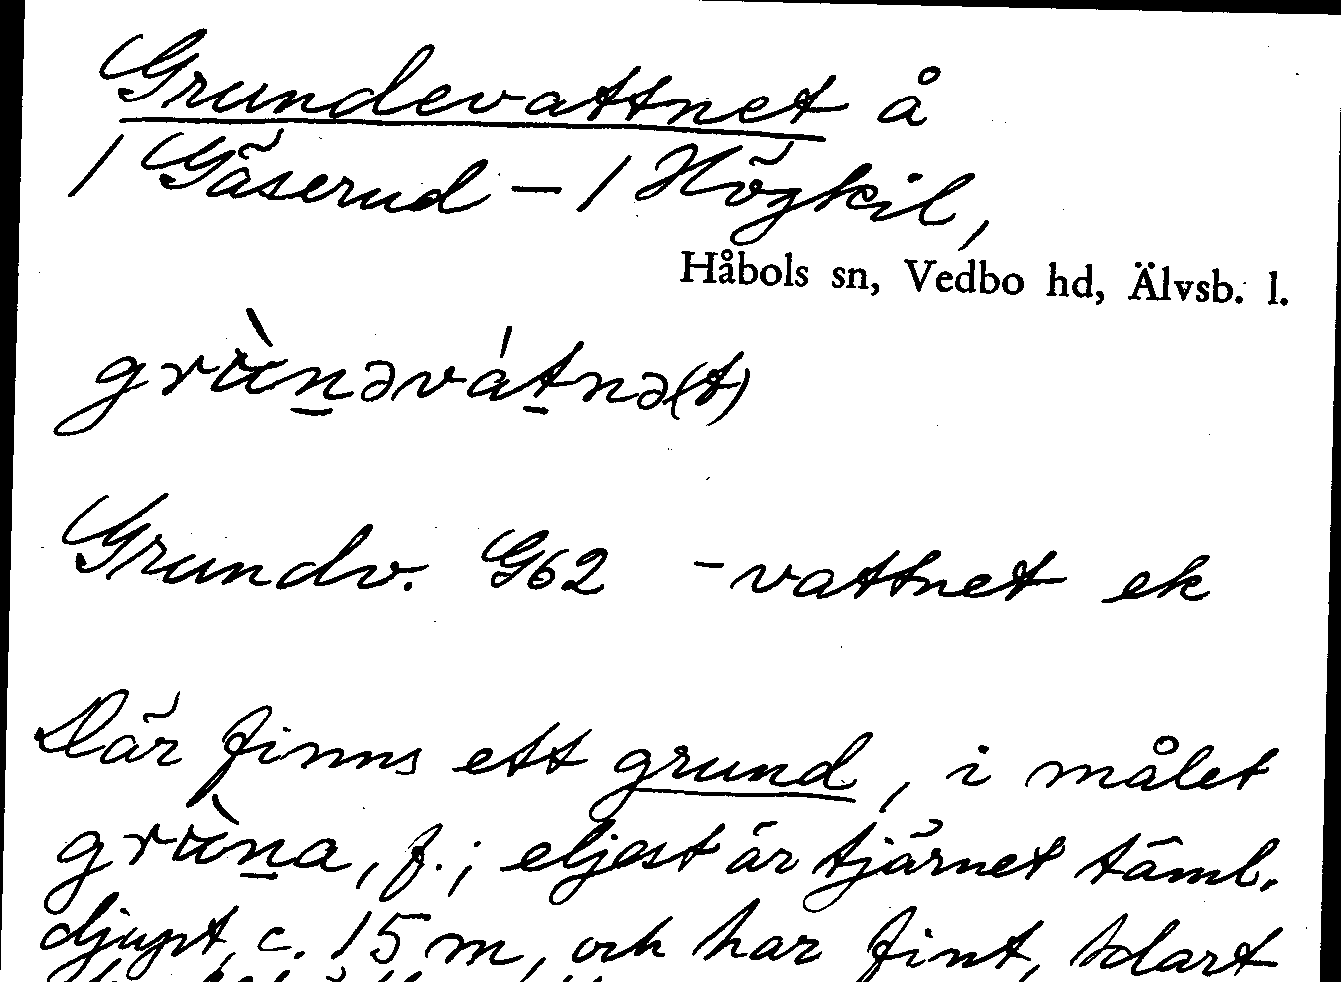 Grundevattnet å
1 Gäserud – 1 Högkil,
Håbols sn, Vedbo hd, Älvsb. l.
grùn̲əvát̲nə(t)
Grundv. G62 -vattnet ek
Där finns ett grund, i målet
grùn̲a, f.; eljest är tjärnet täml.
djupt, c. 15 m, och har fint, klart